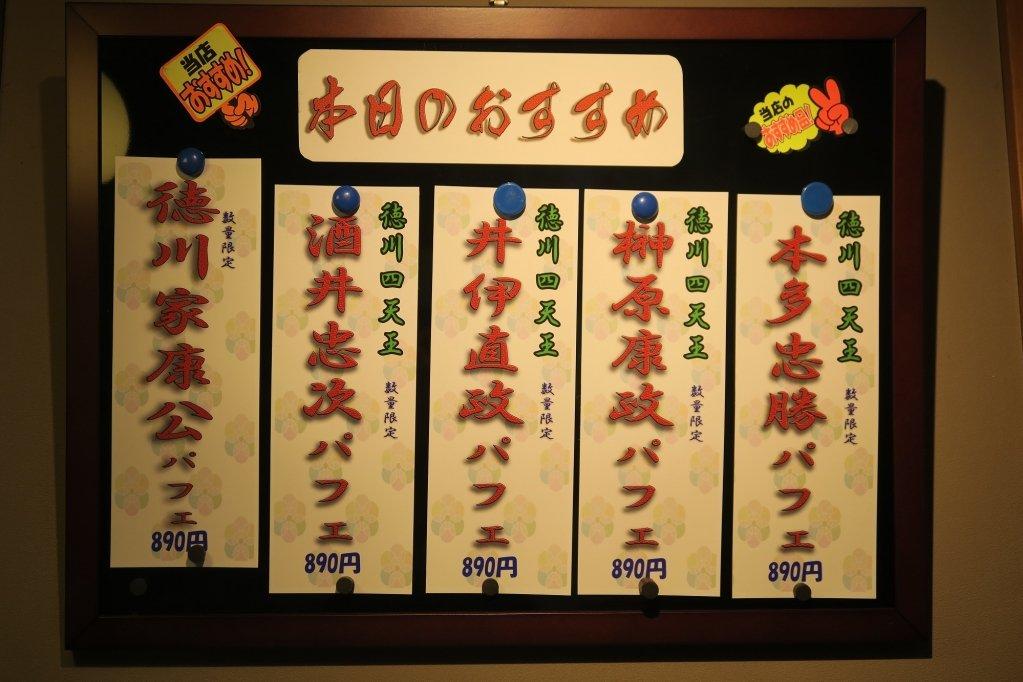 本日のおすすめ
当店
おすすめ!
当店の
おすすめ品!
徳川家康公パフェ
数量限定
890円
徳川四天王
数量限定
酒井忠次パフェ
890円
徳川四天王
数量限定
井伊直政パフェ
890円
徳川四天王
数量限定
榊原康政パフェ
890円
徳川四天王
数量限定
本多忠勝パフェ
890円